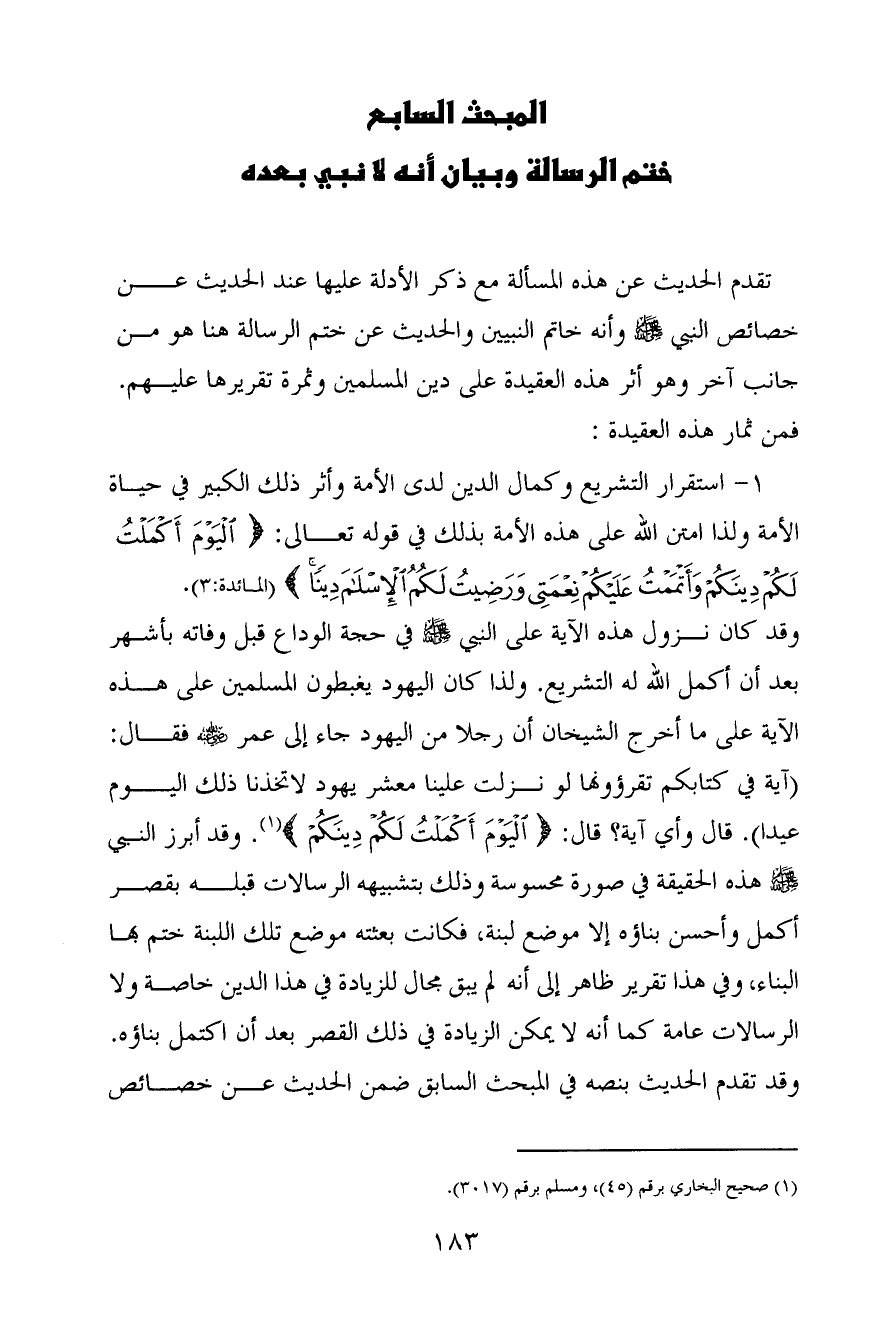 المبحث السابع
ختم الرسالة وبيان أنه لا نبي بعده
تقدم الحديث عن هذه المسألة مع ذكر الأدلة عليها عند الحديث عـــن
خصائص النبي ﷺ وأنه خاتم النبيين والحديث عن ختم الرسالة هنا هو مـن
جانب آخر وهو أثر هذه العقيدة على دين المسلمين وثمرة تقريرها عليـهم.
فمن ثمار هذه العقيدة :
١- استقرار التشريع وكمال الدين لدى الأمة وأثر ذلك الكبير في حيـاة
الأمة ولذا امتن الله على هذه الأمة بذلك في قوله تعـــالى: ﴿ ٱلْيَوْمَ أَكْمَلْتُ
لَكُمْ دِينَكُمْ وَأَتْمَمْتُ عَلَيْكُمْ نِعْمَتِى وَرَضِيتُ لَكُمُ ٱلْإِسْلَٰمَ دِينًا ۚ ﴾ (المائدة:٣).
وقد كان نـــزول هذه الآية على النبي ﷺ في حجة الوداع قبل وفاته بأشـهر
بعد أن أكمل الله له التشريع. ولذا كان اليهود يغبطون المسلمين على هـــذه
الآية على ما أخرج الشيخان أن رجلا من اليهود جاء إلى عمر رضي الله عنه فقـــال:
(آية في كتابكم تقرؤونها لو نـــزلت علينا معشر يهود لاتخذنا ذلك اليـــوم
عيدا). قال وأي آية؟ قال: ﴿ ٱلْيَوْمَ أَكْمَلْتُ لَكُمْ دِينَكُمْ ﴾(١). وقد أبرز النـبي
ﷺ هذه الحقيقة في صورة محسوسة وذلك بتشبيهه الرسالات قبلـــه بقصـر
أكمل وأحسن بناؤه إلا موضع لبنة، فكانت بعثته موضع تلك اللبنة ختم بهـا
البناء، وفي هذا تقرير ظاهر إلى أنه لم يبق مجال للزيادة في هذا الدين خاصـة ولا
الرسالات عامة كما أنه لا يمكن الزيادة في ذلك القصر بعد أن اكتمل بناؤه.
وقد تقدم الحديث بنصه في المبحث السابق ضمن الحديث عـــن خصـائص
(١) صحيح البخاري برقم (٤٥)، ومسلم برقم (٣٠١٧).
١٨٣